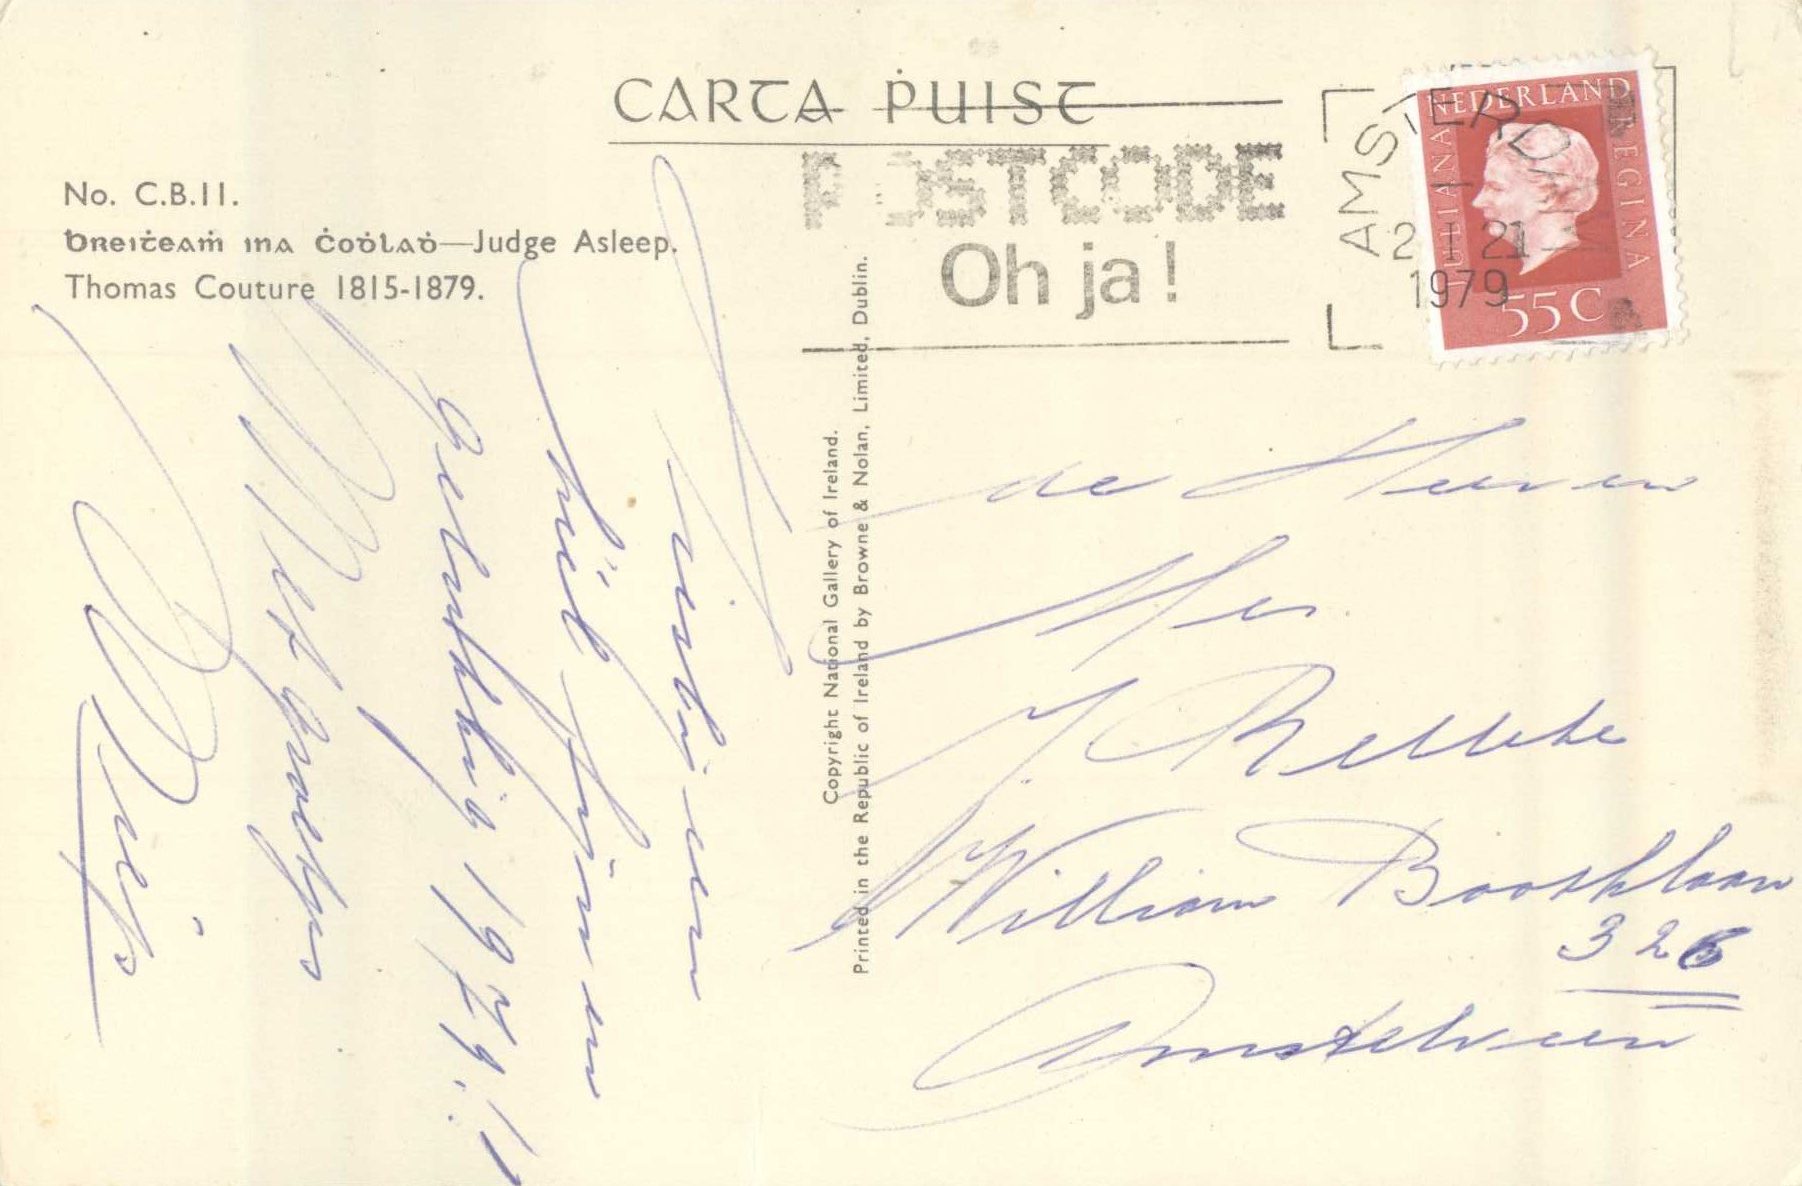 CARTA ṖUIST
No. C.B.11.
breiṫeaṁ ina ċoḋlaḋ—Judge Asleep.
Thomas Couture 1815-1879.
POSTCODE
Oh ja!
AMSTERDAM
2 I 21
1979
NEDERLAND
JULIANA REGINA
55C
Copyright National Gallery of Ireland.
Printed in the Republic of Ireland by Browne & Nolan, Limited, Dublin.
een
fijn en
gelukkig 1979!!
Met groetjes
de Heer en
J.
William Boothlaan
326
Amstelveen